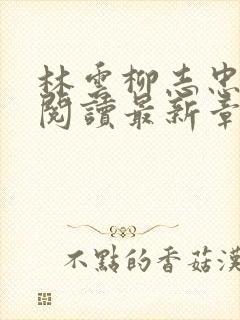 林雲柳志忠
閱讀最新章
不點的香菇漢